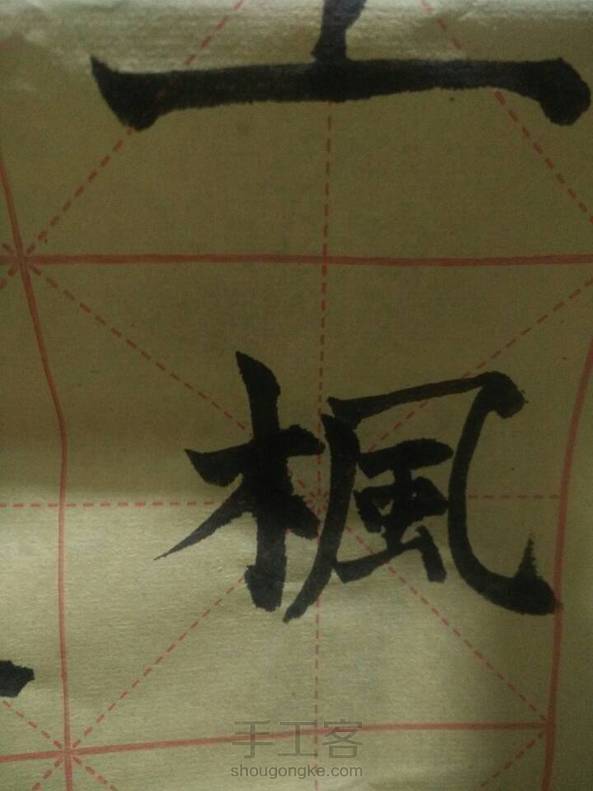 楓
手工客
shougongke.com